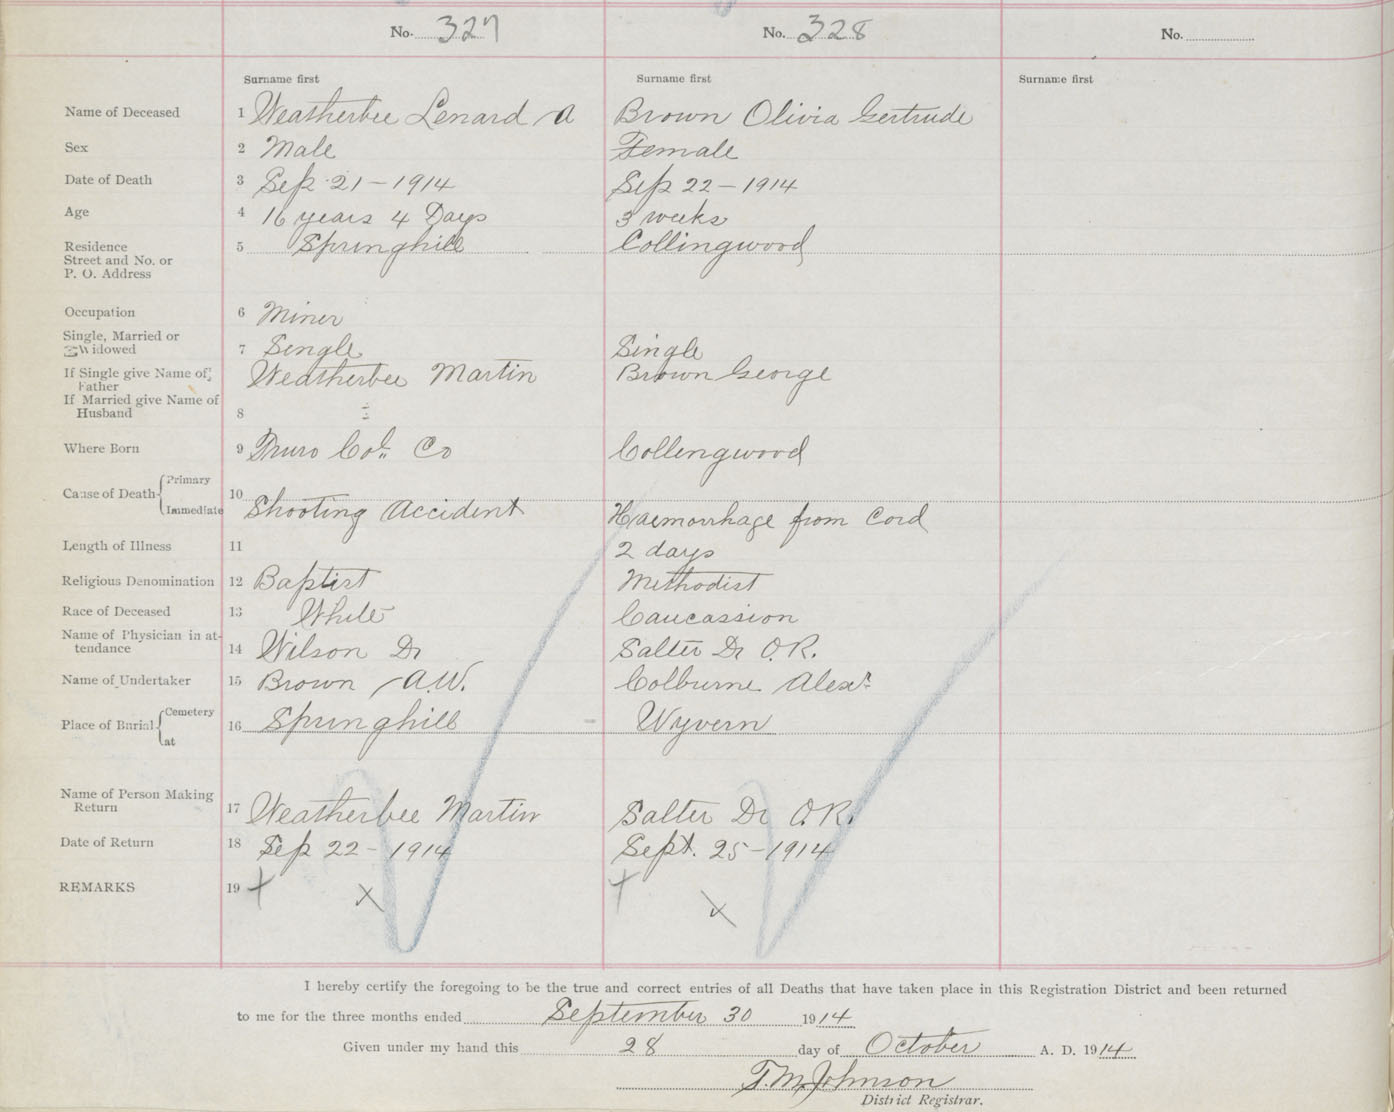 No. 327 No. 328 No.
Surname first Surname first Surname first
Name of Deceased 1 Weatherbee Lenard A Brown Olivia Gertrude
Sex 2 Male Female
Date of Death 3 Sep 21-1914 Sep 22-1914
Age 4 16 years 4 Days 3 weeks
Residence 5 Springhill Collingwood
Street and No. or
P. O. Address
Occupation 6 Miner
Single, Married or
Widowed 7 Single Single
If Single give Name of Weatherbee Martin Brown George
Father
If Married give Name of
Husband 8
Where Born 9 Truro Col. Co Collengwood
Primary
Cause of Death 10
Immediate Shooting Accident Haemorrhage from Cord
Length of Illness 11 2 days
Religious Denomination 12 Baptist Methodist
Race of Deceased 13 White Caucassion
Name of Physician in at-
tendance 14 Wilson Dr Salter Dr O.R.
Name of Undertaker 15 Brown A.W. Colburne Alexr
Cemetery
Place of Burial 16 Springhill Wyvern
at
Name of Person Making
Return 17 Weatherbee Martin Salter Dr O.R.
Date of Return 18 Sep 22-1914 Sept. 25-1914
REMARKS 19 + x + x
I hereby certify the foregoing to be the true and correct entries of all Deaths that have taken place in this Registration District and been returned
to me for the three months ended September 30 1914
Given under my hand this 28 day of October A. D. 1914
T.M. Johnson
District Registrar.